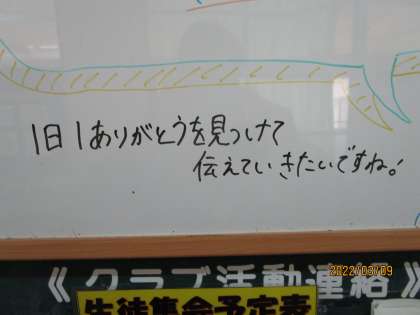 1日1ありがとうを見つけて
伝えていきたいですね!
2022/03/09
《クラブ活動連絡》
生徒集会予定表